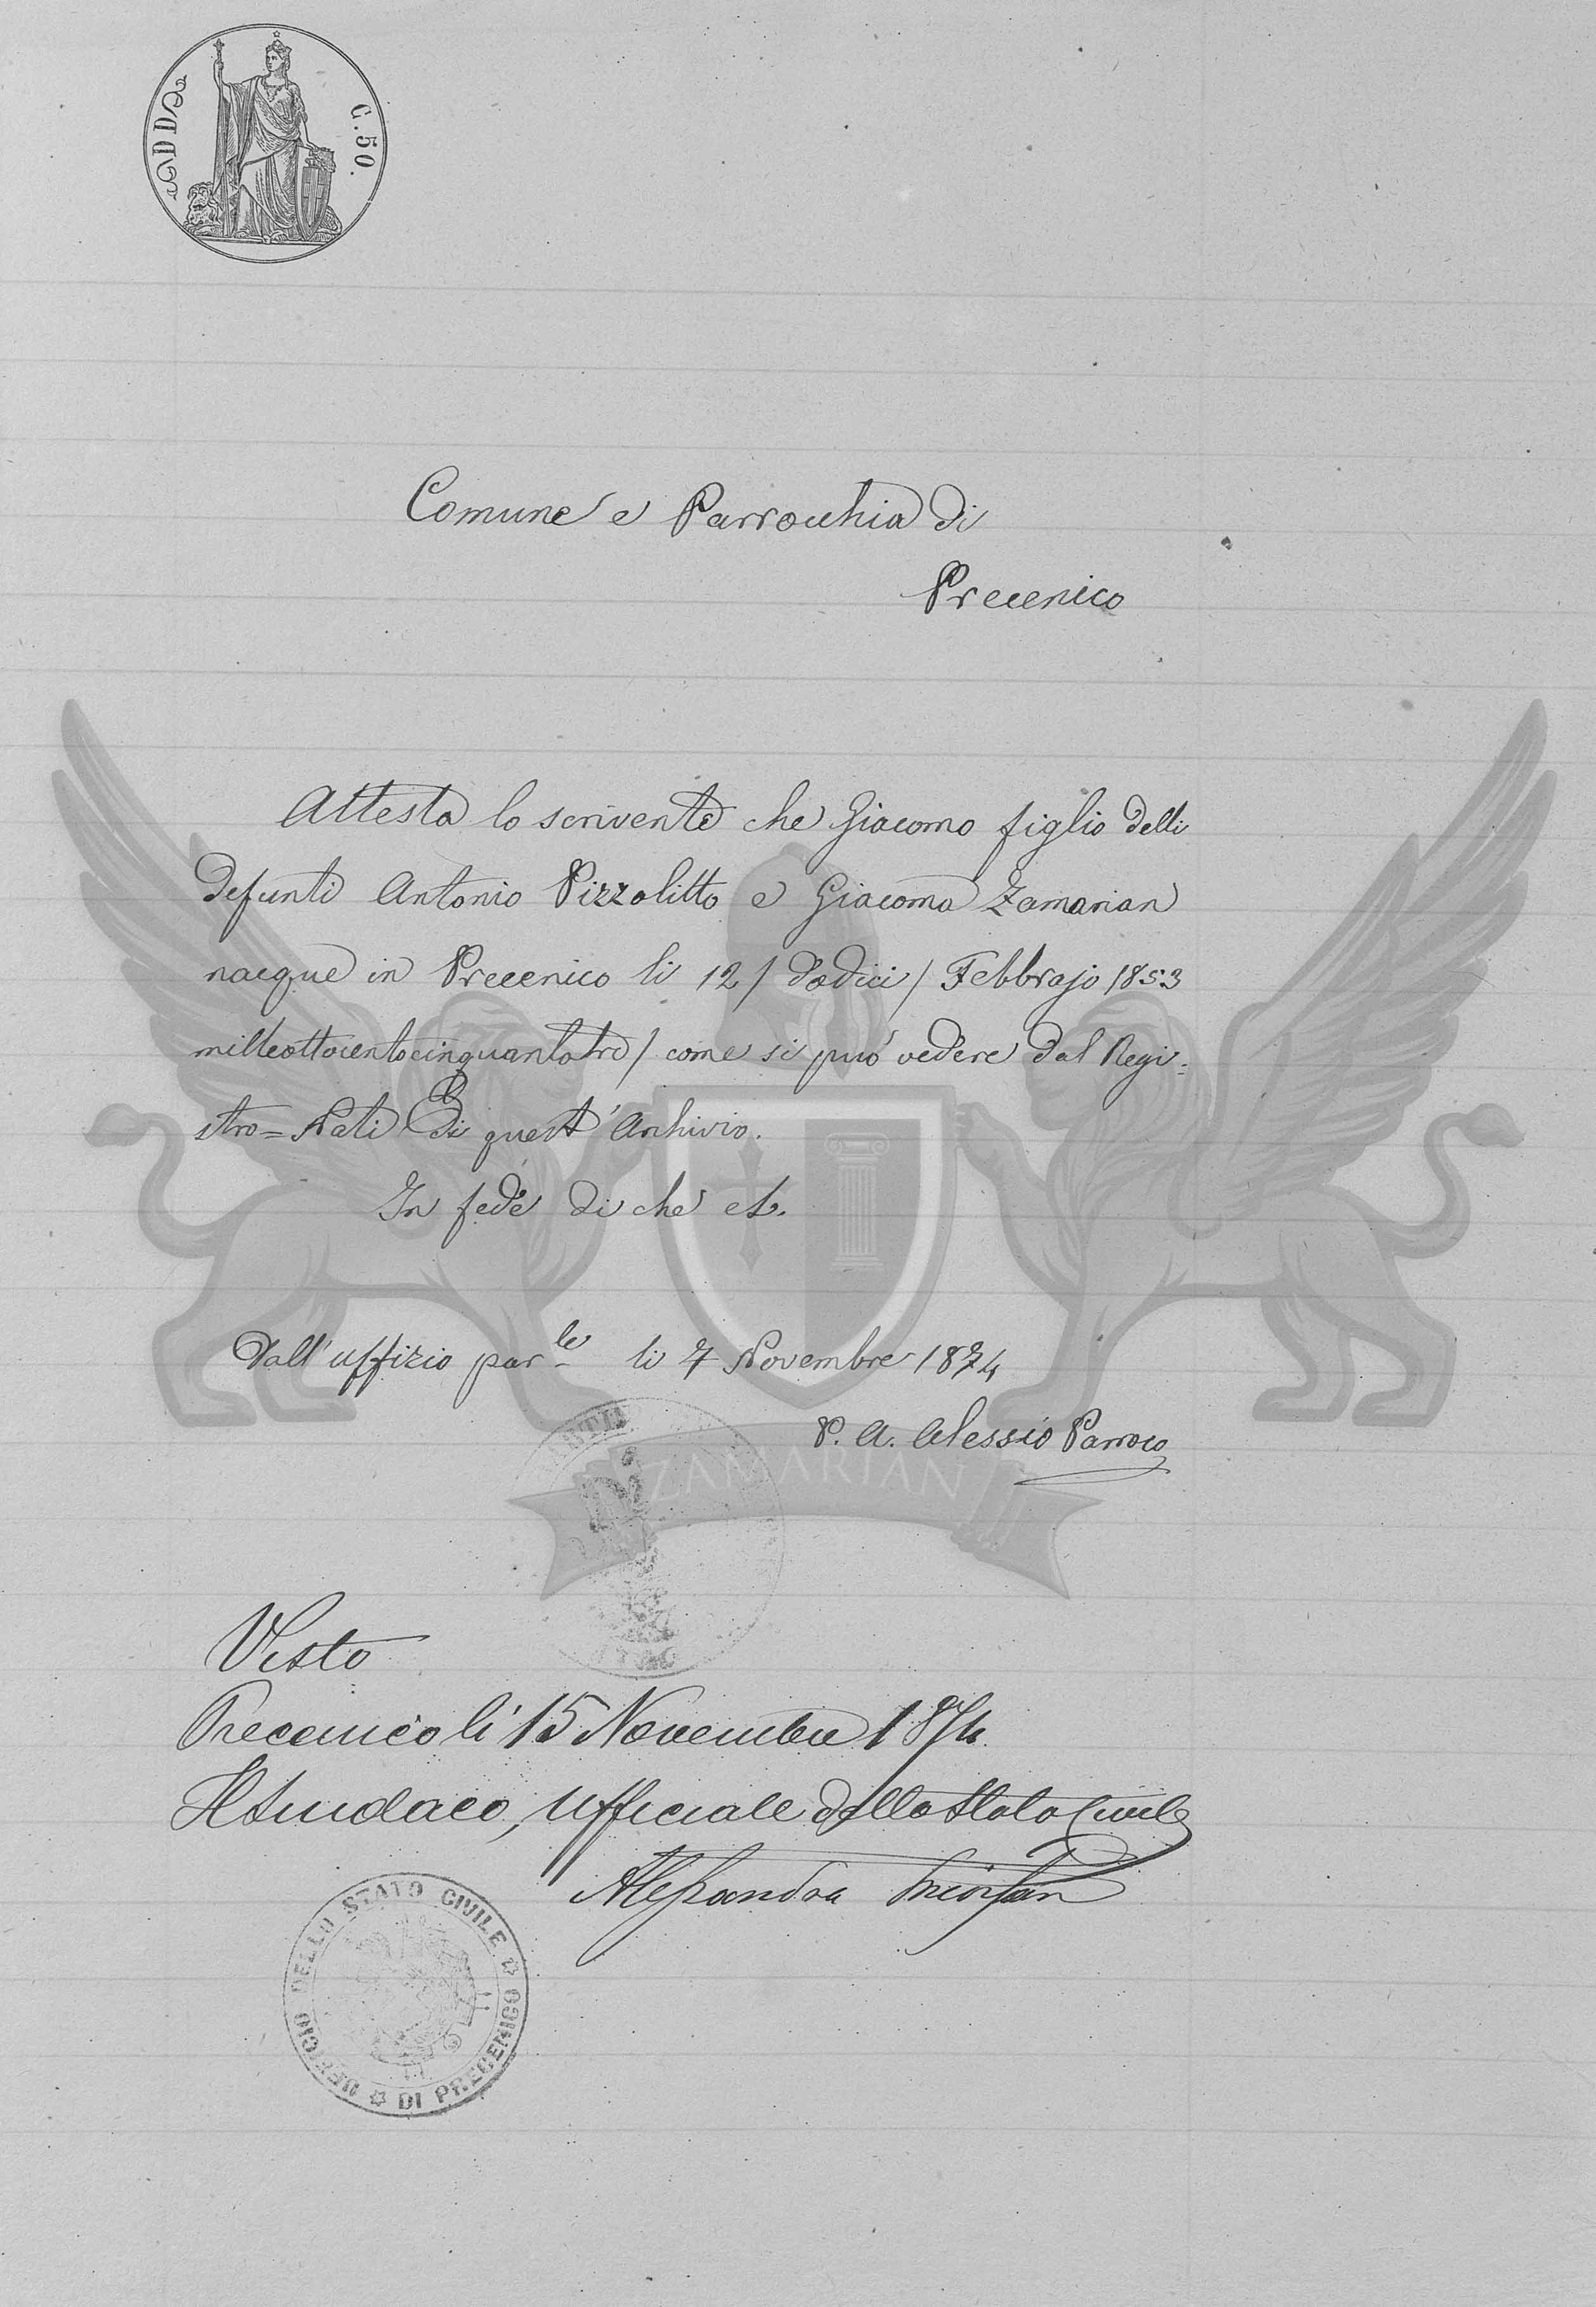 C. 50.
Comune e Parrocchia di
Precenico
Attesta lo scrivente che Giacomo figlio delli
defunti Antonio Pizzolitto e Giacoma Zamarian
nacque in Precenico li 12 / dodici / Febbrajo 1853
milleottocentocinquantatre / come si può vedere dal Regi=
stro=Nati di quest'Archivio.
In fede di che
Dall'uffizio par.le li 7 Novembre 1874
P. A. Alessio Parroco
ZAMARIAN
Visto
Precenico li 15 Novembre 1874
Il Sindaco, Ufficiale dello Stato Civile
UFFICIO DELLO STATO CIVILE
DI PRECENICO